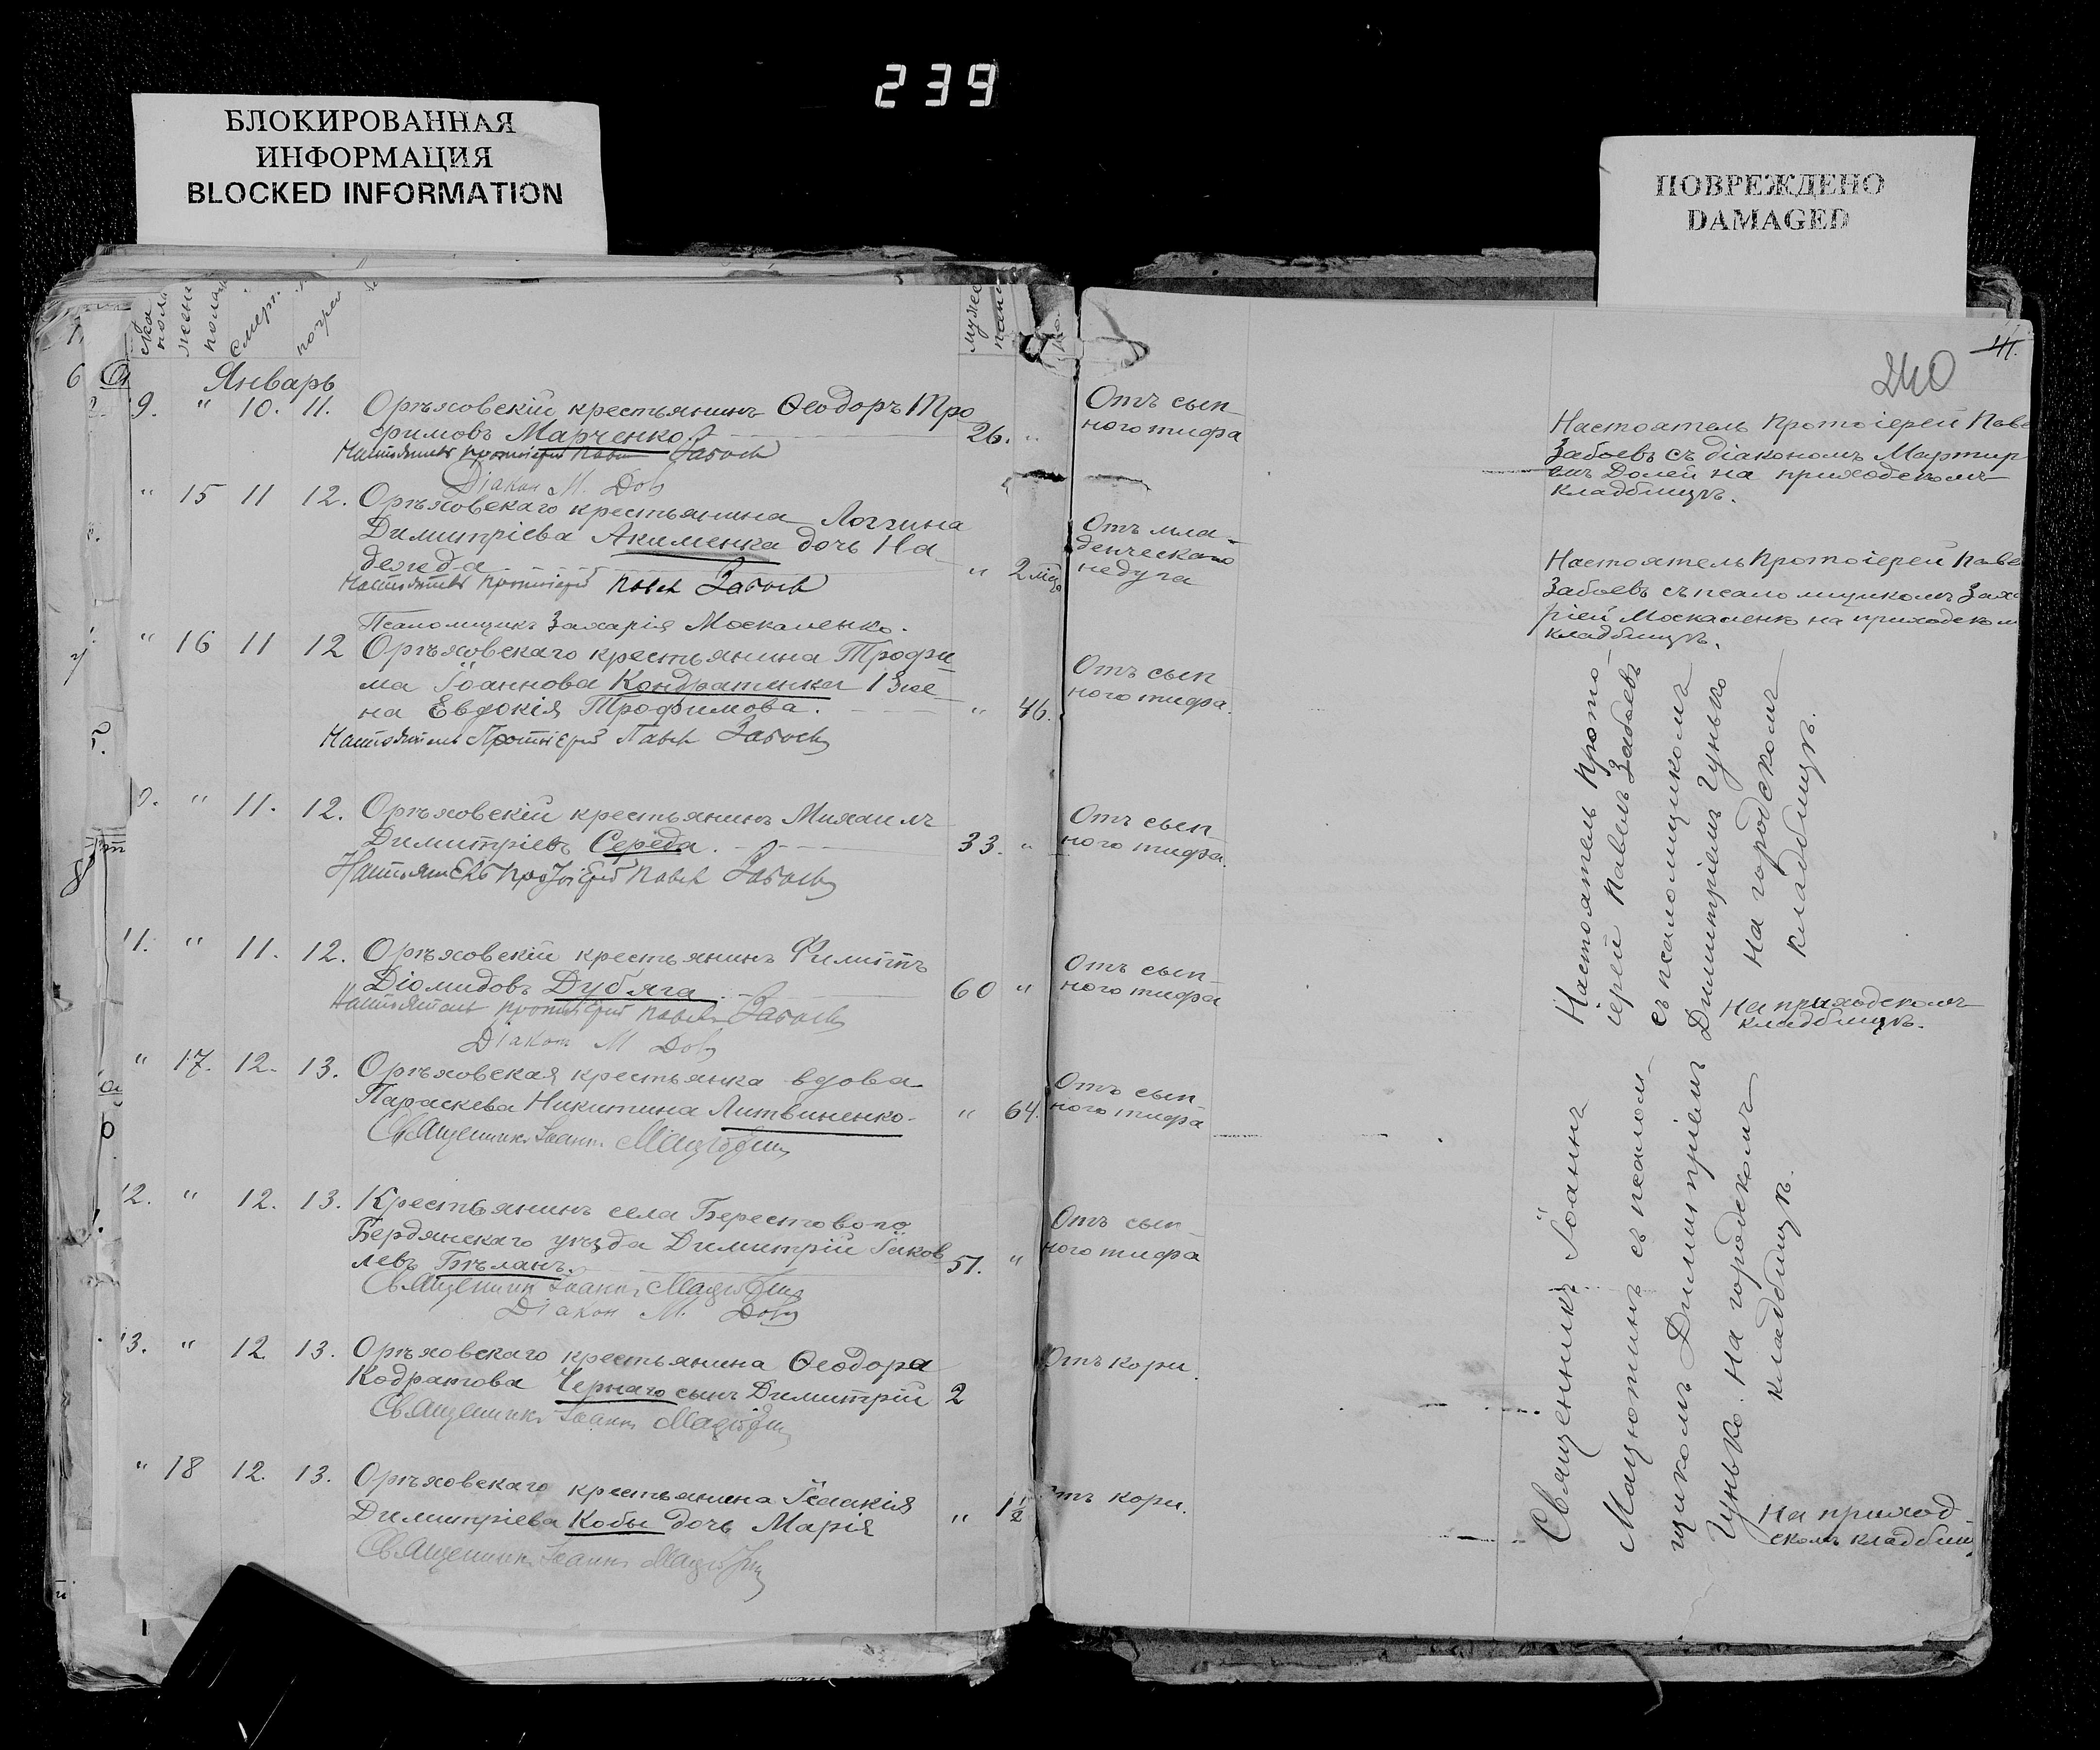 239
БЛОКИРОВАННАЯ
ИНФОРМАЦИЯ
BLOCKED INFORMATION
ПОВРЕЖДЕНО
DAMAGED
240
Январь
9. " 10. 11. Орѣховскій крестьянинъ Ѳеодоръ Тро
фимовъ Марченко. 26. "
Настоятель Протоіерей Павелъ Забоевъ
Діаконъ М. Доля
Отъ сып
ного тифа
Настоятель Протоіерей Паве
Забоевъ съ діакономъ Мартир
емъ Долей на приходскомъ
кладбищѣ.
" 15 11 12. Орѣховскаго крестьянина Логгина
Димитріева Акименка дочь На
дежда " 2 мѣс
Настоятель Протоіерей Павелъ Забоевъ
Псаломщикъ Захарія Москаленко.
Отъ мла-
денческаго
недуга
Настоятель Протоіерей Паве
Забоевъ съ псаломщикомъ Заха
ріей Москаленко на приходском
кладбищѣ.
" 16 11 12 Орѣховскаго крестьянина Трофи
ма Іоаннова Кондратенка жe
на Евдокія Трофимова. " 46.
Настоятель Протоіерей Павелъ Забоевъ
Отъ сып
ного тифа.
0. " 11. 12. Орѣховскій крестьянинъ Михаилъ
Димитріевъ Середа. 33. "
Настоятель Протоіерей Павелъ Забоевъ
Отъ сып
ного тифа.
11. " 11. 12. Орѣховскій крестьянинъ Филиппъ
Діомидовъ Дубяга. 60 "
Настоятель Протоіерей Павелъ Забоевъ
Діаконъ М Доля
Отъ сып
ного тифа
Настоятель Прото-
іерей Павелъ Забоевъ
съ псаломщикомъ
Димитріемъ Гунько
На городскомъ
кладбищѣ.
На приходскомъ
кладбищѣ.
" 17. 12. 13. Орѣховская крестьянка вдова
Параскева Никитина Литвиненко. " 64.
Священникъ Іоаннъ Мацютинъ
Отъ сып
ного тифа
12. " 12. 13. Крестьянинъ села Берестового
Бердянскаго уѣзда Димитрій Іаков
левъ Бѣланъ. 51. "
Священникъ Іоаннъ Мацютинъ
Діаконъ М. Доля
Отъ сып
ного тифа
13. " 12 13. Орѣховскаго крестьянина Ѳеодора
Кодратова Чернаго сынъ Димитрій 2
Священникъ Іоаннъ Мацютинъ
Отъ кори.
" 18 12. 13. Орѣховскаго крестьянина Ісаакія
Димитріева Кобы дочь Марія " 1½
Священникъ Іоаннъ Мацютинъ
Отъ кори.
Священникъ Іоаннъ
Мацютинъ съ псалом-
щикомъ Димитріемъ
Гунько. На городскомъ
кладбищѣ.
На приход-
скомъ кладбищ